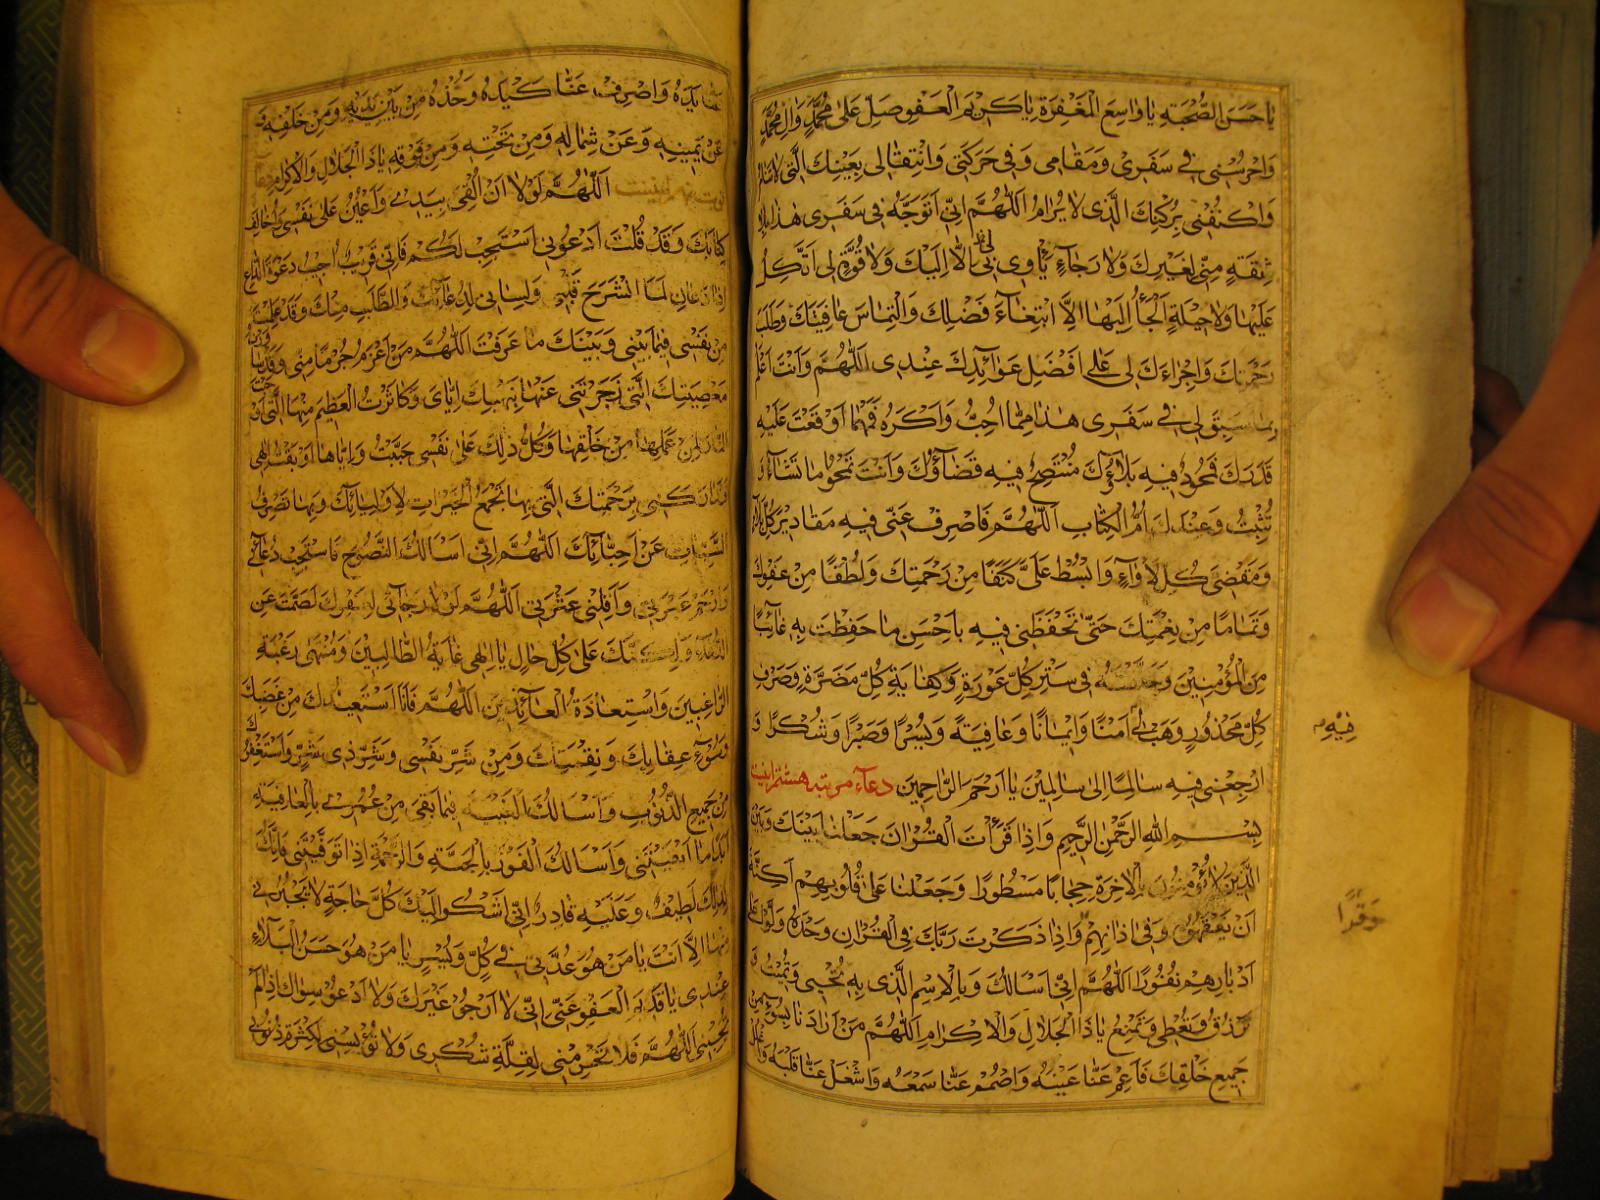 يا حَسَنَ الصُّحْبَةِ يا واسِعَ الْمَغْفِرَةِ يا كَرِيمَ الْعَفْوِ صَلِّ عَلى مُحَمَّدٍ وَالِ مُحَمَّدٍ
وَاحْرُسْنى فى سَفَرى وَمَقامى وَفى حَرَكَتى وَانْتِقالى بِعَيْنِكَ الَّتى لا تَنامُ
وَاكْنُفْنى بِرُكْنِكَ الَّذى لا يُرامُ اَللّهُمَّ اِنّى اَتَوَجَّهُ فى سَفَرى هذا بِلا
ثِقَةٍ مِنّى لِغَيْرِكَ وَلا رَجاءٍ يَاْوى بى اِلاّ اِلَيْكَ وَلا قُوَّةٍ لى اَتَّكِلُ
عَلَيْها وَلا حيلَةٍ اَلْجَأُ اِلَيْها اِلاَّ ابْتِغاءَ فَضْلِكَ وَالْتِماسَ عافِيَتِكَ وَطَلَبَ
رَحْمَتِكَ وَاِجْراءَكَ لى عَلى اَفْضَلِ عَوائِدِكَ عِنْدى اَللّهُمَّ وَاَنْتَ اَعْلَمُ
بِما سَبَقَ لى فى سَفَرى هذا مِمّا اُحِبُّ وَاَكْرَهُ فَمَهْما اَوْقَعْتَ عَلَيْهِ
قَدَرَكَ فَمَحْمُودٌ فيهِ بَلاؤُكَ مُنْتَصِحٌ فيهِ قَضاؤُكَ وَاَنْتَ تَمْحُو ما تَشاءُ وَ
تُثْبِتُ وَعِنْدَكَ اُمُّ الْكِتابِ اَللّهُمَّ فَاصْرِفْ عَنّى فيهِ مَقاديرَ كُلِّ بَلاءٍ
وَمَقْضِىَّ كُلِّ لاْواءٍ وَابْسُطْ عَلَىَّ كَنَفًا مِنْ رَحْمَتِكَ وَلُطْفًا مِنْ عَفْوِكَ
وَتَمامًا مِنْ نِعْمَتِكَ حَتّى تَحْفَظَنى فيهِ باَحْسَنِ ما حَفِظْتَ بِهِ غائِبًا
مِنَ الْمُؤْمِنينَ فى سَتْرِ كُلِّ عَوْرَةٍ وَكِفايَةِ كُلِّ مَضَرَّةٍ وَصَرْفِ
كُلِّ مَحْذُورٍ وَهَبْ لى اَمْنًا وَايمانًا وَعافِيَةً وَيُسْرًا وَصَبْرًا وَشُكْرًا وَ
ارْجِعْنى فيهِ سالِمًا اِلى سالِمينَ يا اَرْحَمَ الرّاحِمينَ دعاء مرتبه هشتم اينست
بِسْمِ اللهِ الرَّحْمنِ الرَّحيمِ وَاِذا قَرَأْتَ الْقُرْانَ جَعَلْنا بَيْنَكَ وَبَيْنَ
الَّذينَ لا يُؤْمِنُونَ بِالاخِرَةِ حِجابًا مَسْطُورًا وَجَعَلْنا عَلى قُلُوبِهِمْ اَكِنَّةً
اَنْ يَفْقَهُوهُ وَفى اذانِهِمْ وَاِذا ذَكَرْتَ رَبَّكَ فِى الْقُرْانِ وَحْدَهُ وَلَّوْا عَلى
اَدْبارِهِمْ نُفُورًا اَللّهُمَّ اِنّى اَسْالُكَ وَبِالْاِسْمِ الَّذى بِهِ تُحْيى وَتُميتُ وَ
تَرْزُقُ وَتُعْطى وَتَمْنَعُ يا ذَا الْجَلالِ وَالْاِكْرامِ اَللّهُمَّ مَنْ اَرادَنا بِسُوءٍ مِنْ
جَميعِ خَلْقِكَ فَاَعْمِ عَنّا عَيْنَهُ وَاصْمُمْ عَنّا سَمْعَهُ وَاشْغَلْ عَنّا قَلْبَهُ وَاغْلُلْ
فِيْهِ
وَقْرًا
عَنّا يَدَهُ وَاصْرِفْ عَنّا كَيْدَهُ وَخُذْهُ مِنْ بَيْنِ يَدَيْهِ وَمِنْ خَلْفِهِ وَ
عَنْ يَمينِهِ وَعَنْ شِمالِهِ وَمِنْ تَحْتِهِ وَمِنْ فَوْقِهِ يا ذَا الْجَلالِ وَالْاِكْرامِ دعاء
اَللّهُمَّ لَوْلا اَنْ اُلْقِىَ بِيَدى وَاُعينُ عَلى نَفْسى وَاُخالِفُ
كِتابَكَ وَقَدْ قُلْتَ اُدْعُونى اَسْتَجِبْ لَكُمْ فَاِنّى قَريبٌ اُجيبُ دَعْوَةَ الدّاعِ
اِذا دَعانِ لَمَا انْشَرَحَ قَلْبى وَلِسانى لِدُعائِكَ وَالطَّلَبِ مِنْكَ وَقَدْ عَلِمْتُ
مِنْ نَفْسى فيما بَيْنى وَبَيْنَكَ ما عَرَفْتَ اَللّهُمَّ مَنْ اَعْظَمُ جُرْمًا مِنّى وَقَدْ
مَعْصِيَتَكَ الَّتى زَجَرْتَنى عَنْها بِنَهْيِكَ اِيّاىَ وَكاثَرْتُ الْعَظيمَ مِنْهَا الَّتى
النّارَ لِمَنْ عَمِلَها مِنْ خَلْقِها وَكُلُّ ذلِكَ عَلى نَفْسى جَنَيْتُ وَاِيّاها اَوْبَقْتُ اِلهى
بِرَحْمَتِكَ الَّتى بِها تَجْمَعُ الْخَيْراتِ لِاَوْلِيائِكَ وَبِها تَصْرِفُ
السَّيِّئاتِ عَنْ اَحِبّائِكَ اَللّهُمَّ اِنّى اَسْالُكَ النَّصُوحَ فَاسْتَجِبْ دُعائى
وَارْحَمْ عَبْرَتى وَاَقِلْنى عَثْرَتى اَللّهُمَّ لَوْلا رَجائى لِعَفْوِكَ لَصَمَتُّ عَنِ
الدُّعاءِ وَلكِنَّكَ عَلى كُلِّ حالٍ يا اِلهى غايَةُ الطّالِبينَ وَمُنْتَهى رَغْبَةِ
الرّاغِبينَ وَاسْتِعاذَةُ الْعائِذينَ اَللّهُمَّ فَاَنَا اَسْتَعيذُكَ مِنْ غَضَبِكَ
وَسُوءِ عِقابِكَ وَنِقْمَتِكَ وَمِنْ شَرِّ نَفْسى وَشَرِّ ذى شَرٍّ وَاَسْتَغْفِرُكَ
مِنْ جَميعِ الذُّنُوبِ وَاَسْالُكَ فيما بَقِىَ مِنْ عُمُرى بِالْعافِيَةِ
اَبَدًا ما اَبْقَيْتَنى وَاَسْالُكَ الْفَوْزَ بِالْجَنَّةِ وَالرَّحْمَةِ اِذا تَوَفَّيْتَنى فَاِنَّكَ
لِذلِكَ لَطيفٌ وَعَلَيْهِ قادِرٌ اِنّى اَشْكُو اِلَيْكَ كُلَّ حاجَةٍ لا يُجيرُنى
مِنْها اِلاّ اَنْتَ يا مَنْ هُوَ عُدَّتى فى كُلِّ وَيُسْرٍ يا مَنْ هُوَ حَسَنُ الْبَلاءِ
عِنْدى يا قَديمَ الْعَفْوِ عَنّى اِنّى لا اَرْجُو غَيْرَكَ وَلا اَدْعُو سِواكَ اِذا لَمْ
تُجِبْنى اَللّهُمَّ فَلا تَحْرِمْنى لِقِلَّةِ شُكْرى وَلا تُؤْيِسْنى لِكَثْرَةِ ذُنُوبى